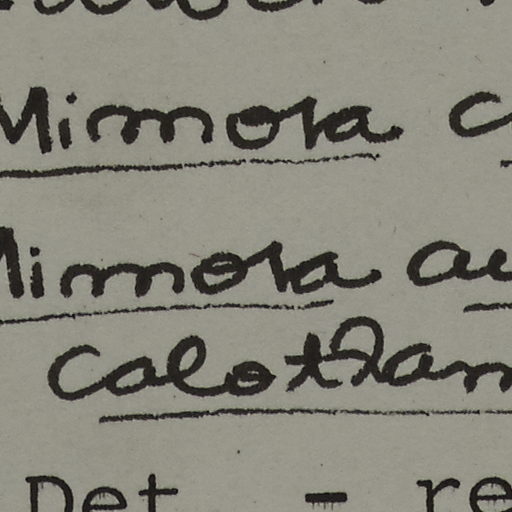 Mimosa c
Mimosa au
calotham
Det. - re